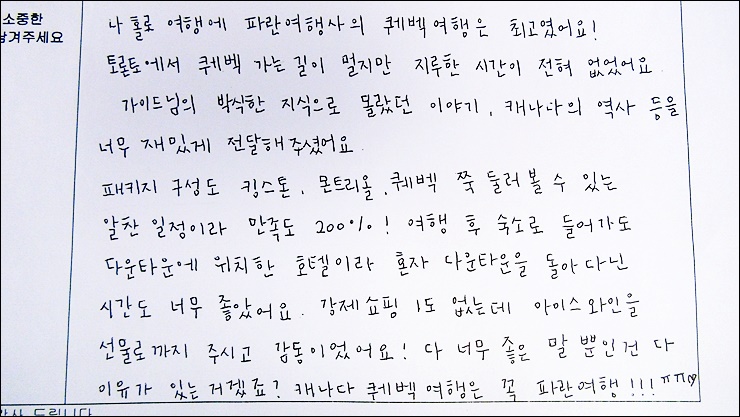 소중한
남겨주세요
나 홀로 여행에 파란여행사의 퀘벡여행은 최고였어요!
토론토에서 퀘벡 가는 길이 멀지만 지루한 시간이 전혀 없었어요.
가이드님의 박식한 지식으로 몰랐던 이야기, 캐나다의 역사 등을
너무 재밌게 전달해주셨어요.
패키지 구성도 킹스톤, 몬트리올, 퀘벡 쭉 둘러볼 수 있는
알찬 일정이라 만족도 200%! 여행 후 숙소로 들어가도
다운타운에 위치한 호텔이라 혼자 다운타운을 돌아다닌
시간도 너무 좋았어요. 강제쇼핑 1도 없는데 아이스와인을
선물로까지 주시고 감동이었어요! 다 너무 좋은 말 뿐인건 다
이유가 있는거겠죠? 캐나다 퀘벡여행은 꼭 파란여행!!! ㅠㅠ♡
감사 드립니다